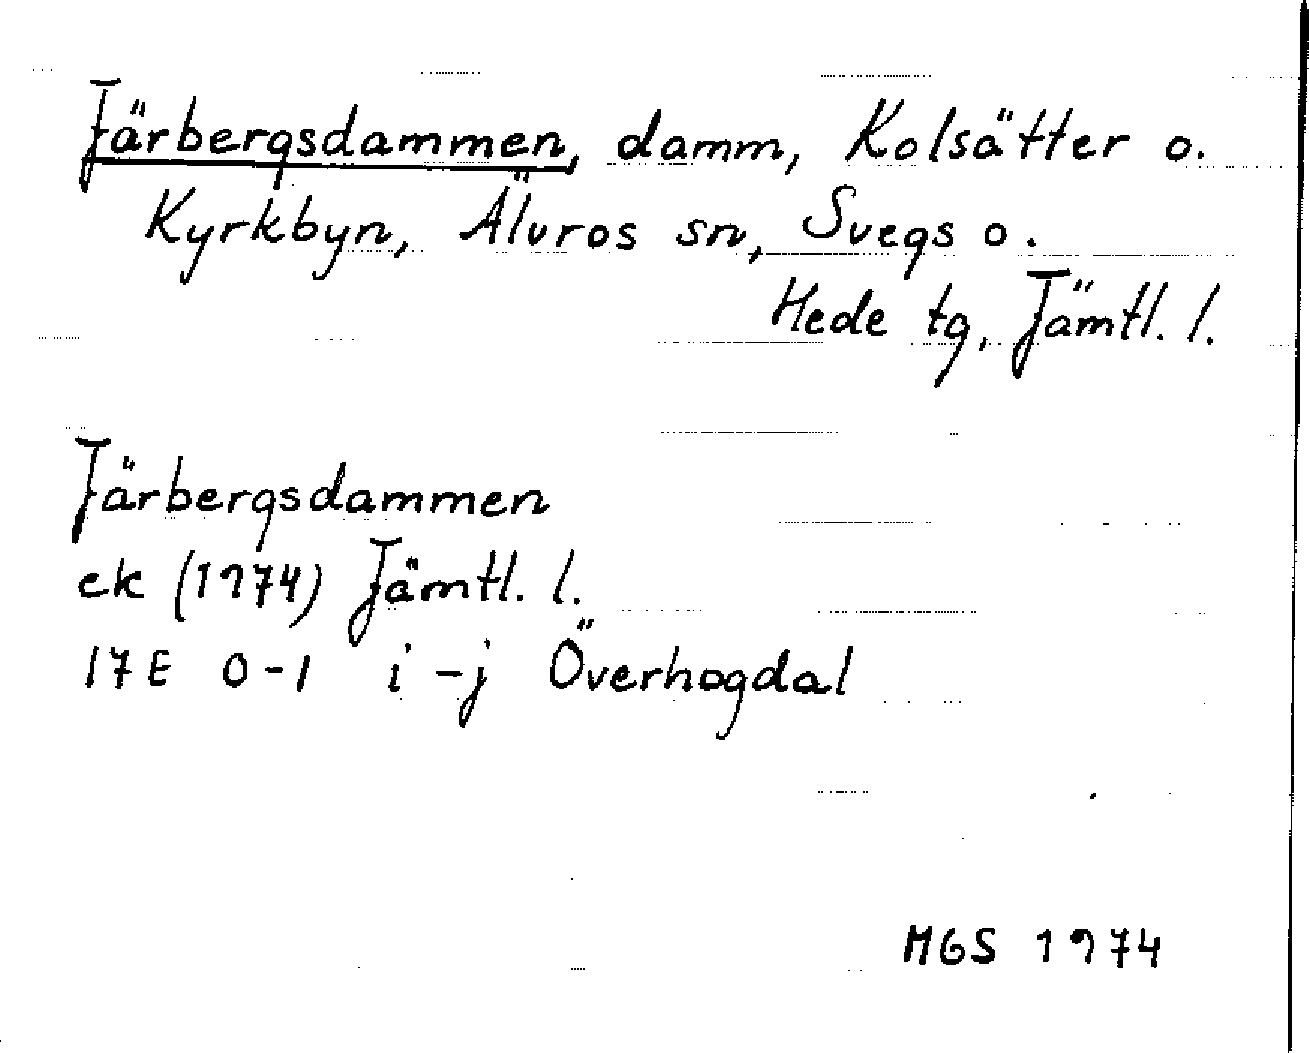 Järbergsdammen, damm, Kolsätter o.
Kyrkbyn, Älvros sn, Svegs o.
Hede tg, Jämtl. l.
Järbergsdammen
ek (1974) Jämtl. l.
17E 0-1 i-j Överhogdal
MGS 1974